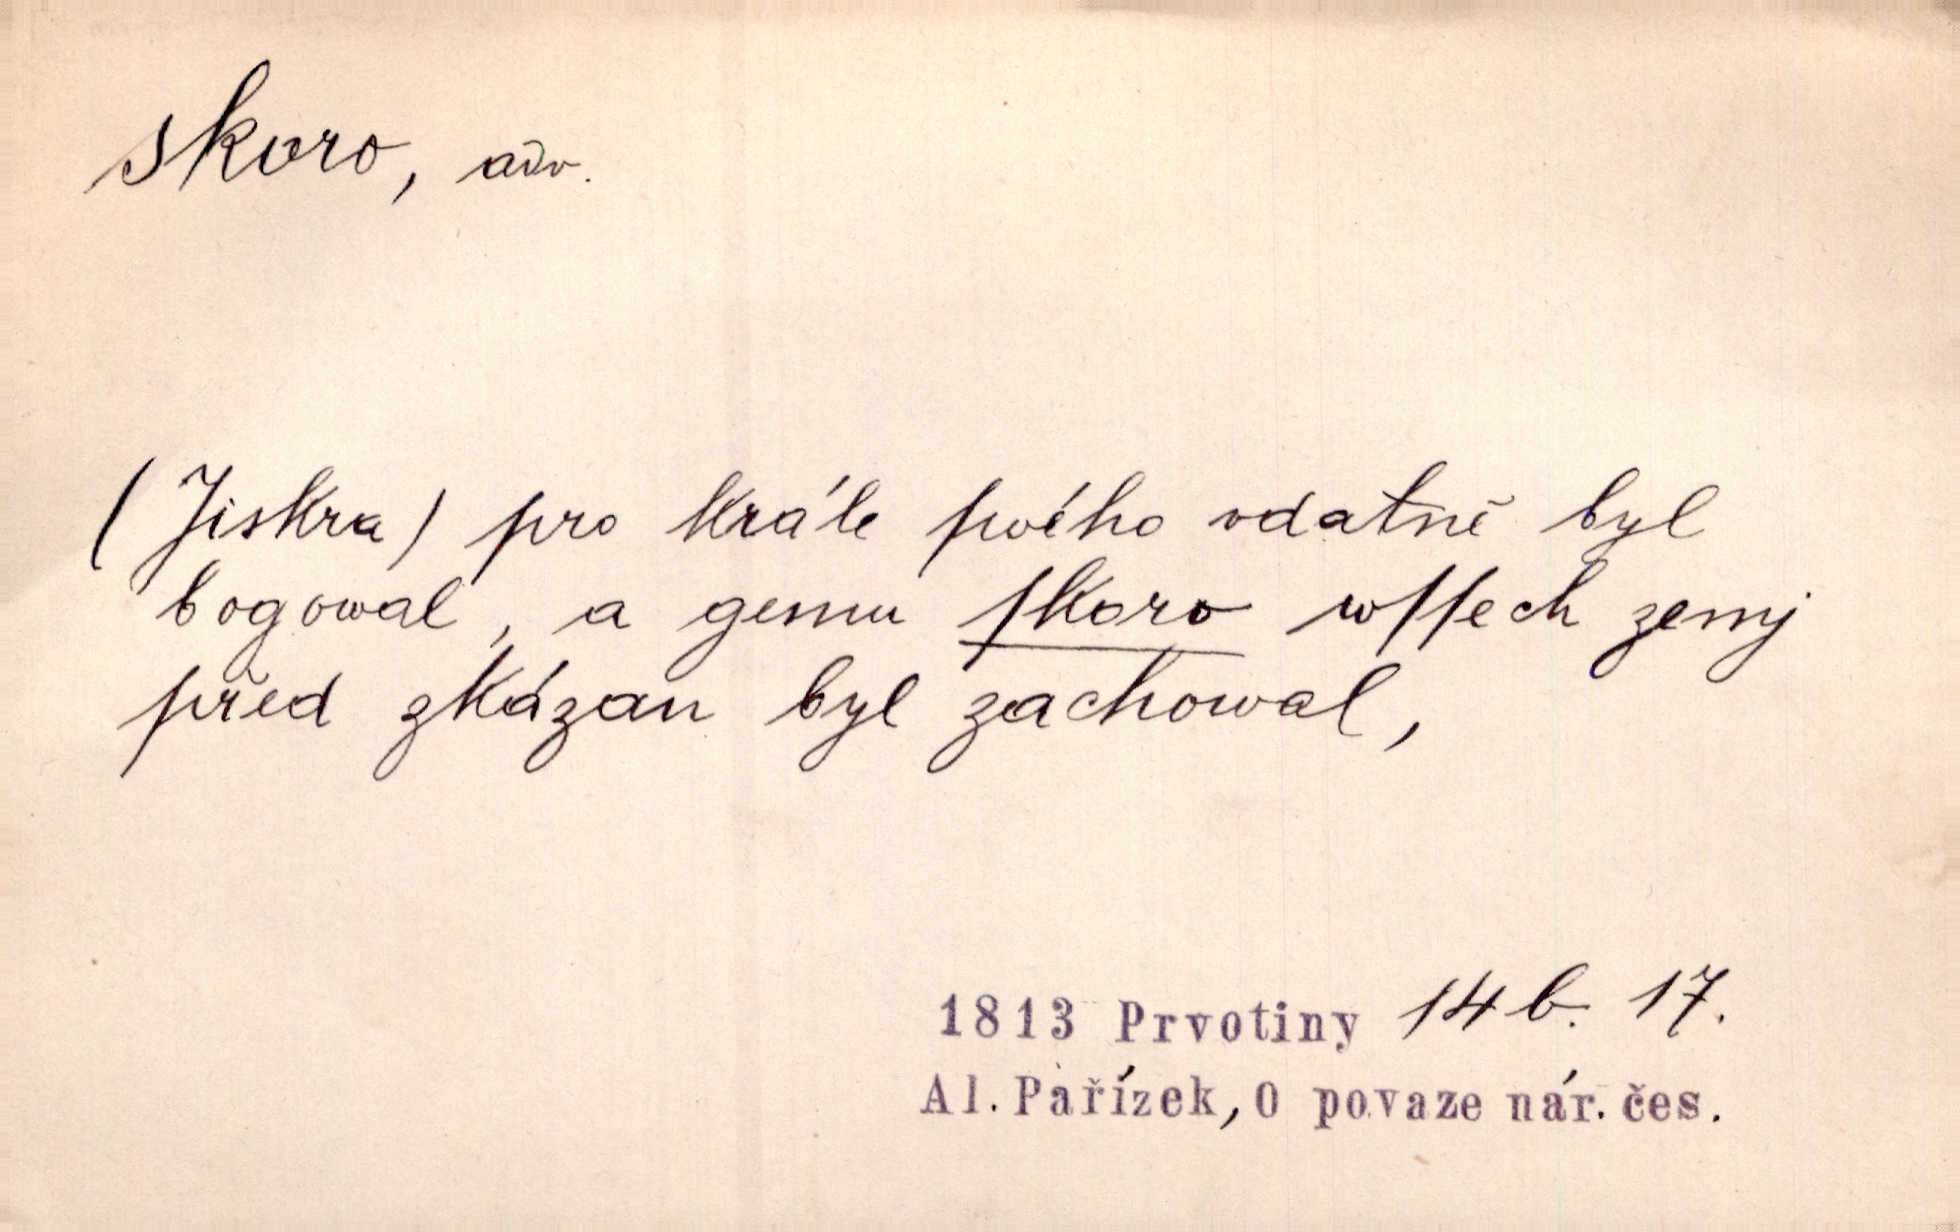 skoro, adv.
(Jiskra) pro krále ſwého vdatně byl
bogowal, a gemu ſkoro wſſech zemj
před zkázau byl zachowal,
1813 Prvotiny 14 b. 17.
Al. Pařízek, O povaze nár. čes.